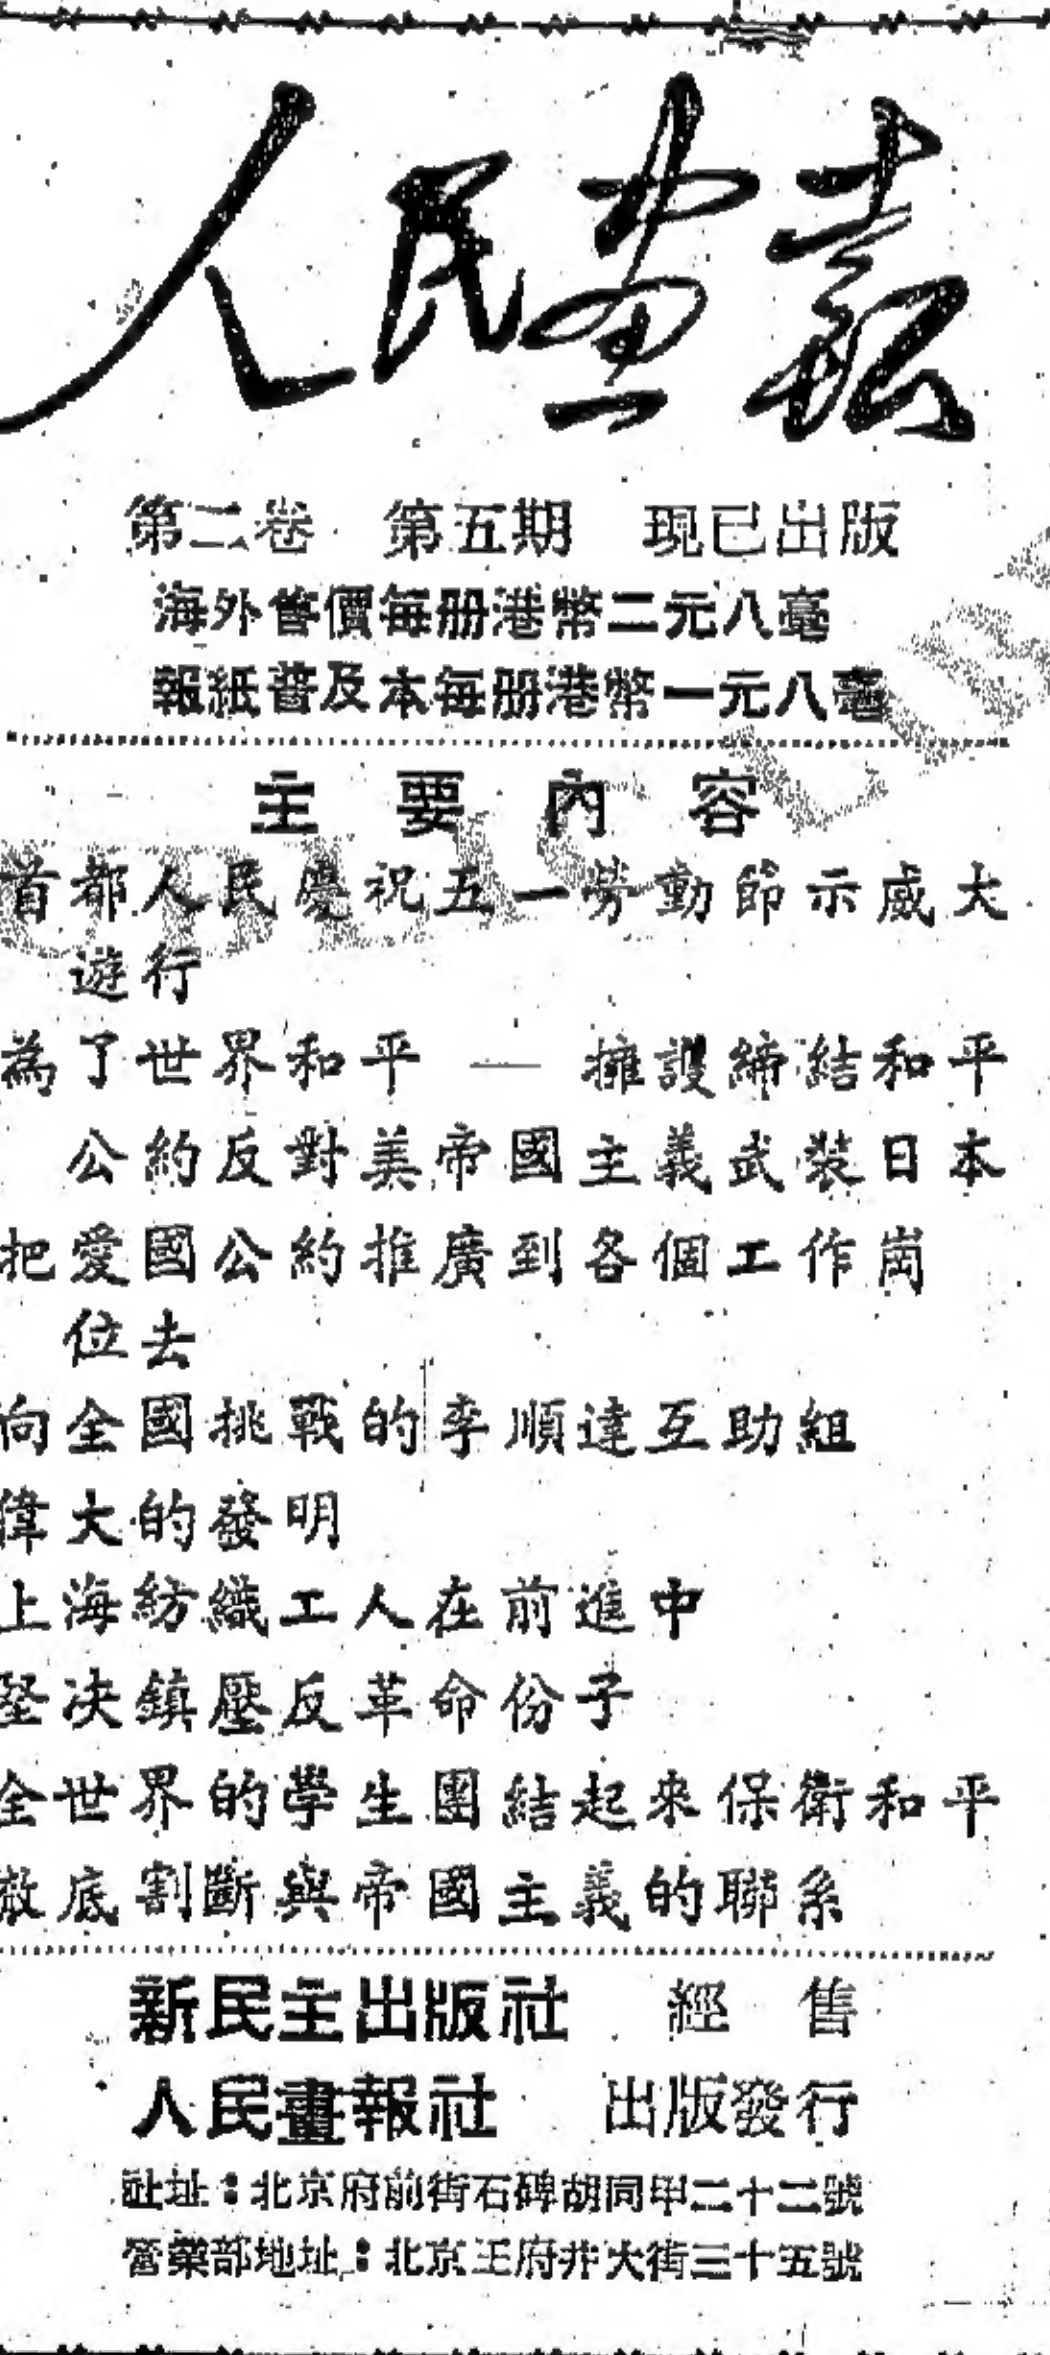 人民画报
第二卷 第五期 現已出版
海外售價每册港幣二元八毫
報紙普及本每册港幣一元八毫
主要內容
首都人民慶祝五一勞動節示威大
遊行
為了世界和平 — 擁護締結和平
公約反對美帝國主義武裝日本
把愛國公約推廣到各個工作崗
位去
向全國挑戰的李順達互助組
偉大的發明
上海紡織工人在前進中
堅决鎮壓反革命份子
全世界的學生團結起來保衛和平
徹底割斷與帝國主義的聯系
新民主出版社 經售
人民畫報社 出版發行
社址：北京府前街石碑胡同甲二十二號
營業部地址：北京王府井大街三十五號